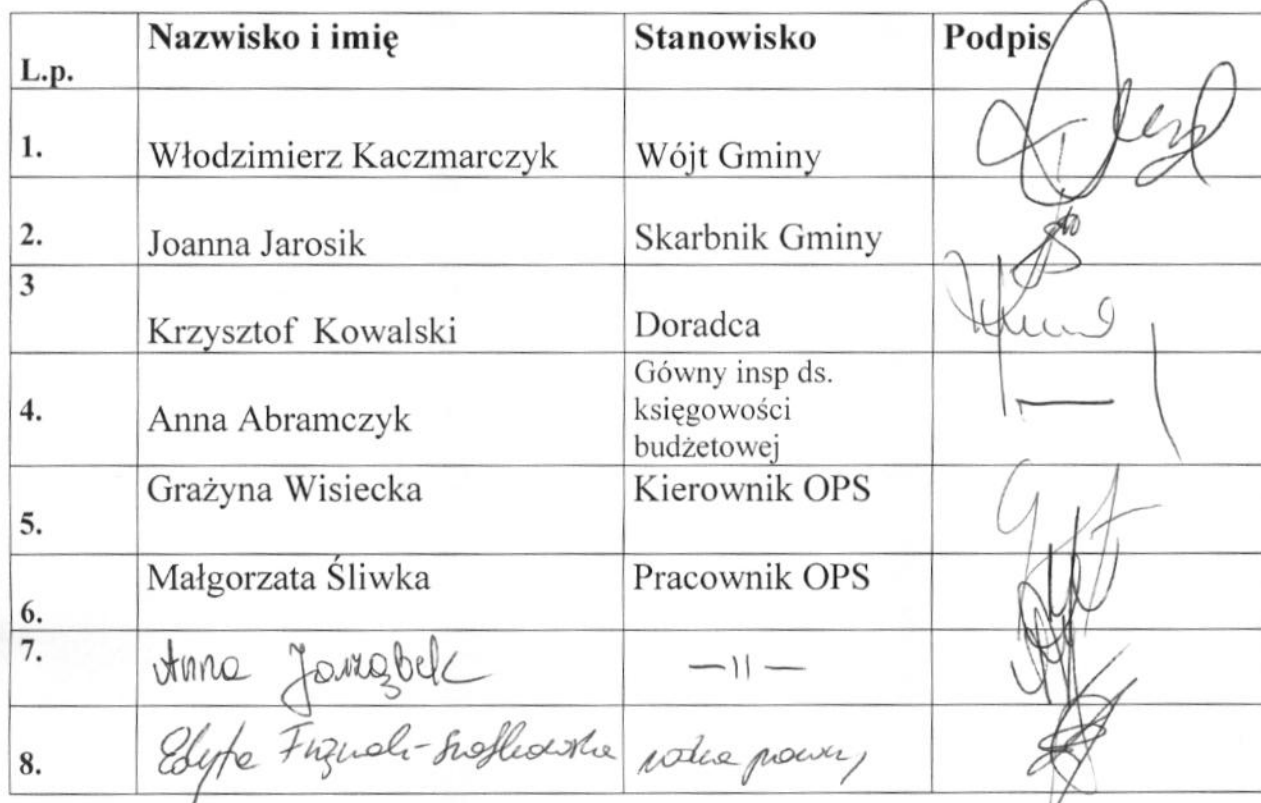 L.p. Nazwisko i imię Stanowisko Podpis
1. Włodzimierz Kaczmarczyk Wójt Gminy
2. Joanna Jarosik Skarbnik Gminy
3 Krzysztof Kowalski Doradca
4. Anna Abramczyk Gówny insp ds.
księgowości
budżetowej
5. Grażyna Wisiecka Kierownik OPS
6. Małgorzata Śliwka Pracownik OPS
7. Anna Jarząbek —||—
8. Edyta